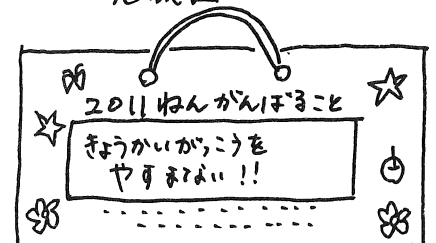 2011ねんがんばること
きょうかいがっこうを
やすまない!!